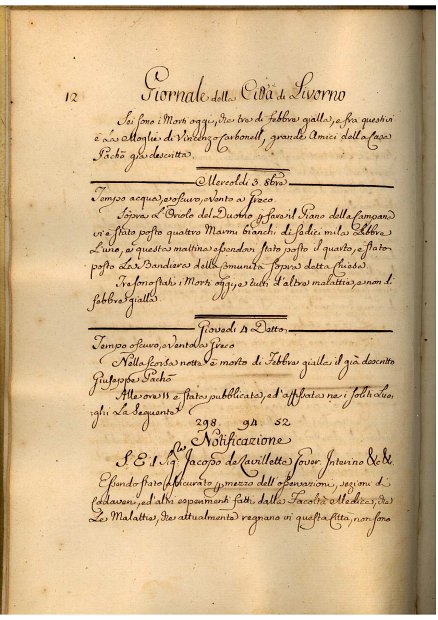 12
Giornale della Città di Livorno
Sei sono i Morti oggi, che tre di febbre gialla, e fra questi vi
è la Moglie di Vincenzo Carbonell, grande Amici della Casa
Pachò già descritta.
Mercoldì 3. 8bre
Tempo acqua, e oscuro, e vento a Greco
Sopra l'Orolo del Duomo, p fare il Piano della Campana
vi è stato posto quattro Marmi bianchi di sedici mila Libbre
l'uno, e questa mattina essendovi stato posto il quarto, è stato
posto La Bandiera della Comunità sopra detta Chiesa
Tre sono stati i Morti oggi, e tutti d'altre malattie, e non di
febbre gialla
Giovedì 4 Detto
Tempo oscuro, e vento a Greco
Nella scorsa notte è morto di Febbre gialla il già descritto
Giuseppe Pachò
Alle ore 11 è stata pubblicata, ed affissata ne i soliti Luo-
ghi La Seguente
298. 94 52
Notificazione
S. E. il Sig.re Jacopo de Lavillette Gover. Interino &c &c.
Essendo stato assicurato p mezzo dell'osservazioni, sezioni di
Cadaveri, ed altri esperimenti fatti dalla Facoltà Medica, che
Le Malattie, che attualmente regnano in questa Città, non sono